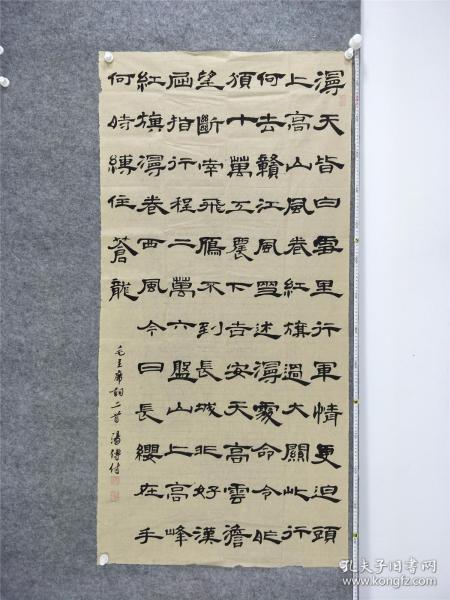 漫天皆白雪里行軍情更迫頭
上高山風卷紅旗過大關此行
何去贛江風雪迷漫處命令昨
頒十萬工農下吉安天高雲澹
望斷南飛鴈不到長城非好漢
屈指行程二萬六盤山上高峰
紅旗漫卷西風今日長纓在手
何時縛住蒼龍
毛主席詞二首
孔夫子旧书网
www.kongfz.com